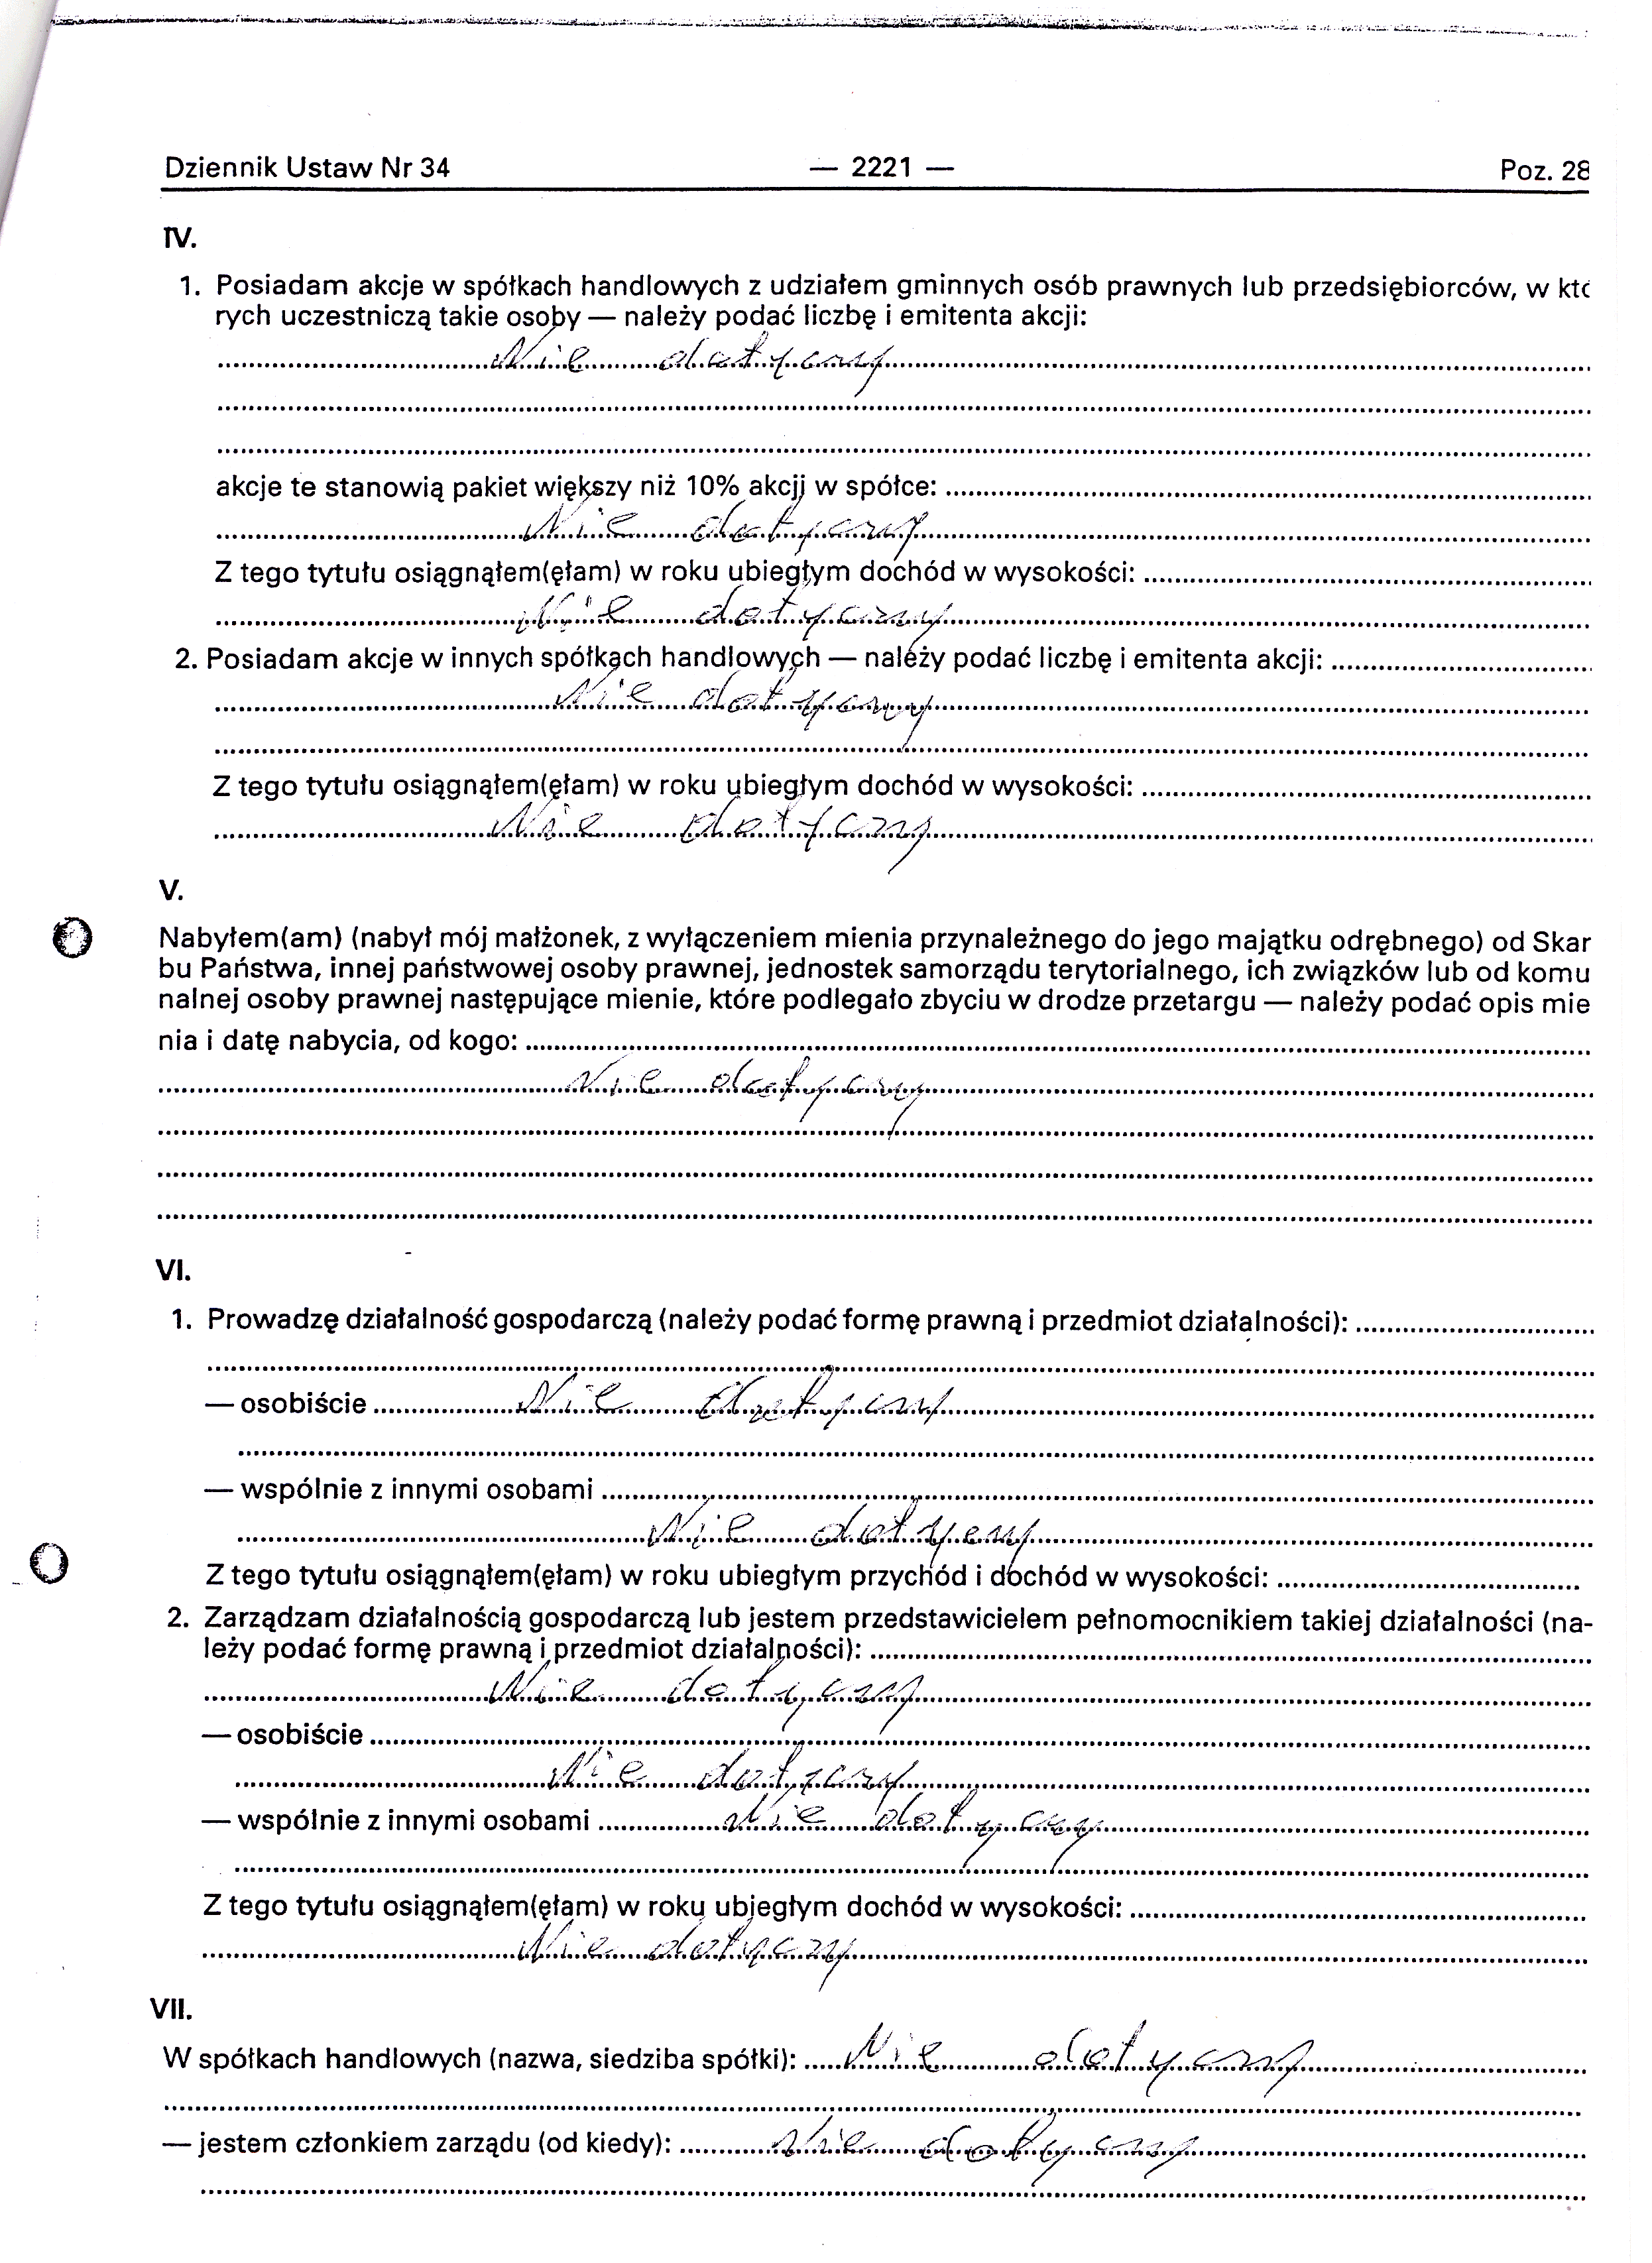 Dziennik Ustaw Nr 34 — 2221 — Poz. 28
IV.
1. Posiadam akcje w spółkach handlowych z udziałem gminnych osób prawnych lub przedsiębiorców, w któ
rych uczestniczą takie osoby — należy podać liczbę i emitenta akcji:
Nie dotyczy
akcje te stanowią pakiet większy niż 10% akcji w spółce:
Nie dotyczy
Z tego tytułu osiągnąłem(ęłam) w roku ubiegłym dochód w wysokości:
Nie dotyczy
2. Posiadam akcje w innych spółkach handlowych — należy podać liczbę i emitenta akcji:
Nie dotyczy
Z tego tytułu osiągnąłem(ęłam) w roku ubiegłym dochód w wysokości:
Nie dotyczy
V.
Nabyłem(am) (nabył mój małżonek, z wyłączeniem mienia przynależnego do jego majątku odrębnego) od Skar
bu Państwa, innej państwowej osoby prawnej, jednostek samorządu terytorialnego, ich związków lub od komu
nalnej osoby prawnej następujące mienie, które podlegało zbyciu w drodze przetargu — należy podać opis mie
nia i datę nabycia, od kogo:
Nie dotyczy
VI.
1. Prowadzę działalność gospodarczą (należy podać formę prawną i przedmiot działalności):
— osobiście Nie dotyczy
— wspólnie z innymi osobami
Nie dotyczy
Z tego tytułu osiągnąłem(ęłam) w roku ubiegłym przychód i dochód w wysokości:
2. Zarządzam działalnością gospodarczą lub jestem przedstawicielem pełnomocnikiem takiej działalności (na-
leży podać formę prawną i przedmiot działalności):
Nie dotyczy
— osobiście
Nie dotyczy
— wspólnie z innymi osobami Nie dotyczy
Z tego tytułu osiągnąłem(ęłam) w roku ubiegłym dochód w wysokości:
Nie dotyczy
VII.
W spółkach handlowych (nazwa, siedziba spółki): Nie dotyczy
— jestem członkiem zarządu (od kiedy): Nie dotyczy